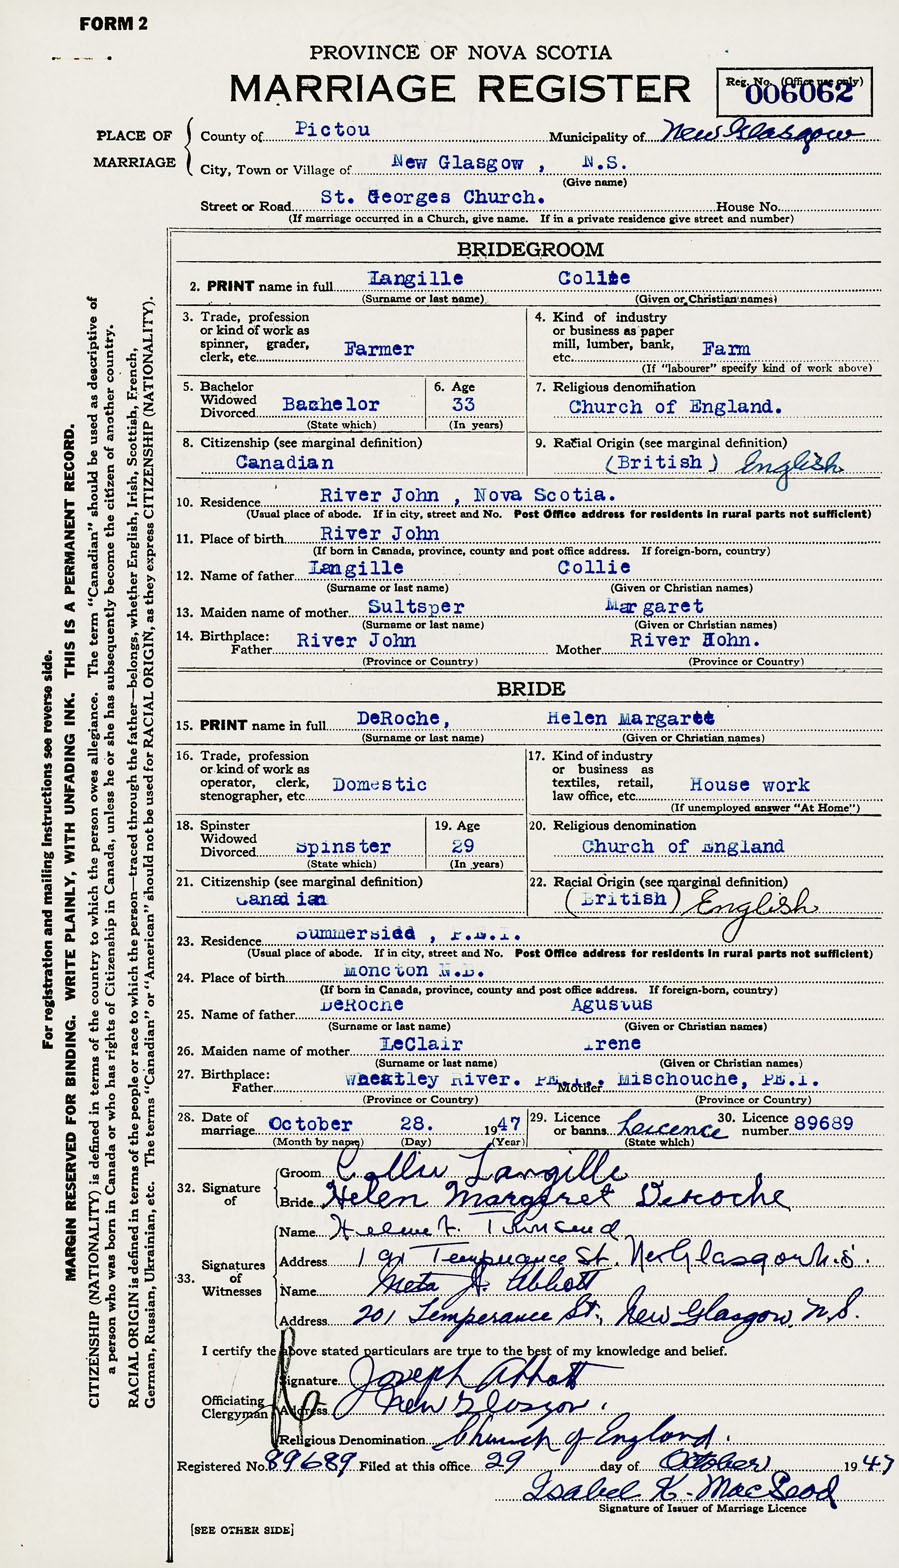 FORM 2
PROVINCE OF NOVA SCOTIA
MARRIAGE REGISTER
Reg. No. (Office use only)
006062
PLACE OF MARRIAGE
County of Pictou Municipality of New Glasgow
City, Town or Village of New Glasgow , N.S.
(Give name)
Street or Road St. Georges Church. House No.
(If marriage occurred in a Church, give name. If in a private residence give street and number)
BRIDEGROOM
2. PRINT name in full Langille Collie
(Surname or last name) (Given or Christian names)
3. Trade, profession or kind of work as spinner, grader, clerk, etc. Farmer
4. Kind of industry or business as paper mill, lumber, bank, etc. Farm
(If "labourer" specify kind of work above)
5. Bachelor Widowed Divorced Bachelor
(State which)
6. Age 33
(In years)
7. Religious denomination
Church of England.
8. Citizenship (see marginal definition)
Canadian
9. Racial Origin (see marginal definition)
(British) English
10. Residence River John , Nova Scotia.
(Usual place of abode. If in city, street and No. Post Office address for residents in rural parts not sufficient)
11. Place of birth River John
(If born in Canada, province, county and post office address. If foreign-born, country)
12. Name of father Langille Collie
(Surname or last name) (Given or Christian names)
13. Maiden name of mother Sultsper Margaret
(Surname or last name) (Given or Christian names)
14. Birthplace: Father River John Mother River Hohn.
(Province or Country) (Province or Country)
BRIDE
15. PRINT name in full DeRoche, Helen Margaret
(Surname or last name) (Given or Christian names)
16. Trade, profession or kind of work as operator, clerk, stenographer, etc. Domestic
17. Kind of industry or business as textiles, retail, law office, etc. House work
(If unemployed answer "At Home")
18. Spinster Widowed Divorced Spinster
(State which)
19. Age 29
(In years)
20. Religious denomination
Church of England
21. Citizenship (see marginal definition)
Canadian
22. Racial Origin (see marginal definition)
(British) English
23. Residence Summersidd , P.E.I.
(Usual place of abode. If in city, street and No. Post Office address for residents in rural parts not sufficient)
24. Place of birth Moncton N.B.
(If born in Canada, province, county and post office address. If foreign-born, country)
25. Name of father DeRoche Agustus
(Surname or last name) (Given or Christian names)
26. Maiden name of mother LeClair Irene
(Surname or last name) (Given or Christian names)
27. Birthplace: Father Wheatley River. PE.I.. Mother Mischouche, PE.I.
(Province or Country) (Province or Country)
28. Date of marriage October 28. 1947
(Month by name) (Day) (Year)
29. Licence or banns Licence
(State which)
30. Licence number 89689
32. Signature of
Groom Collie Langille
Bride Helen Margaret Deroche
33. Signatures of Witnesses
Name Townsend
Address 191 Temperance St. New Glasgow N.S.
Name Meta A. Abbott
Address 201 Temperance St., New Glasgow, N.S.
I certify the above stated particulars are true to the best of my knowledge and belief.
Officiating Clergyman
Signature Joseph Abbott
Address New Glasgow.
Religious Denomination Church of England.
Registered No. 89689 Filed at this office 29 day of October 1947
Isabel K. MacLeod
Signature of Issuer of Marriage Licence
[SEE OTHER SIDE]
For registration and mailing instructions see reverse side.
MARGIN RESERVED FOR BINDING. WRITE PLAINLY, WITH UNFADING INK. THIS IS A PERMANENT RECORD.
CITIZENSHIP (NATIONALITY) is defined in terms of the country to which the person owes allegiance. The term "Canadian" should be used as descriptive of
a person who was born in Canada or who has rights of Citizenship in Canada, unless he or she has subsequently become the citizen of another country.
RACIAL ORIGIN is defined in terms of the people or race to which the person—traced through the father—belongs, whether English, Irish, Scottish, French,
German, Russian, Ukrainian, etc. The terms "Canadian" or "American" should not be used for RACIAL ORIGIN, as they express CITIZENSHIP (NATIONALITY).